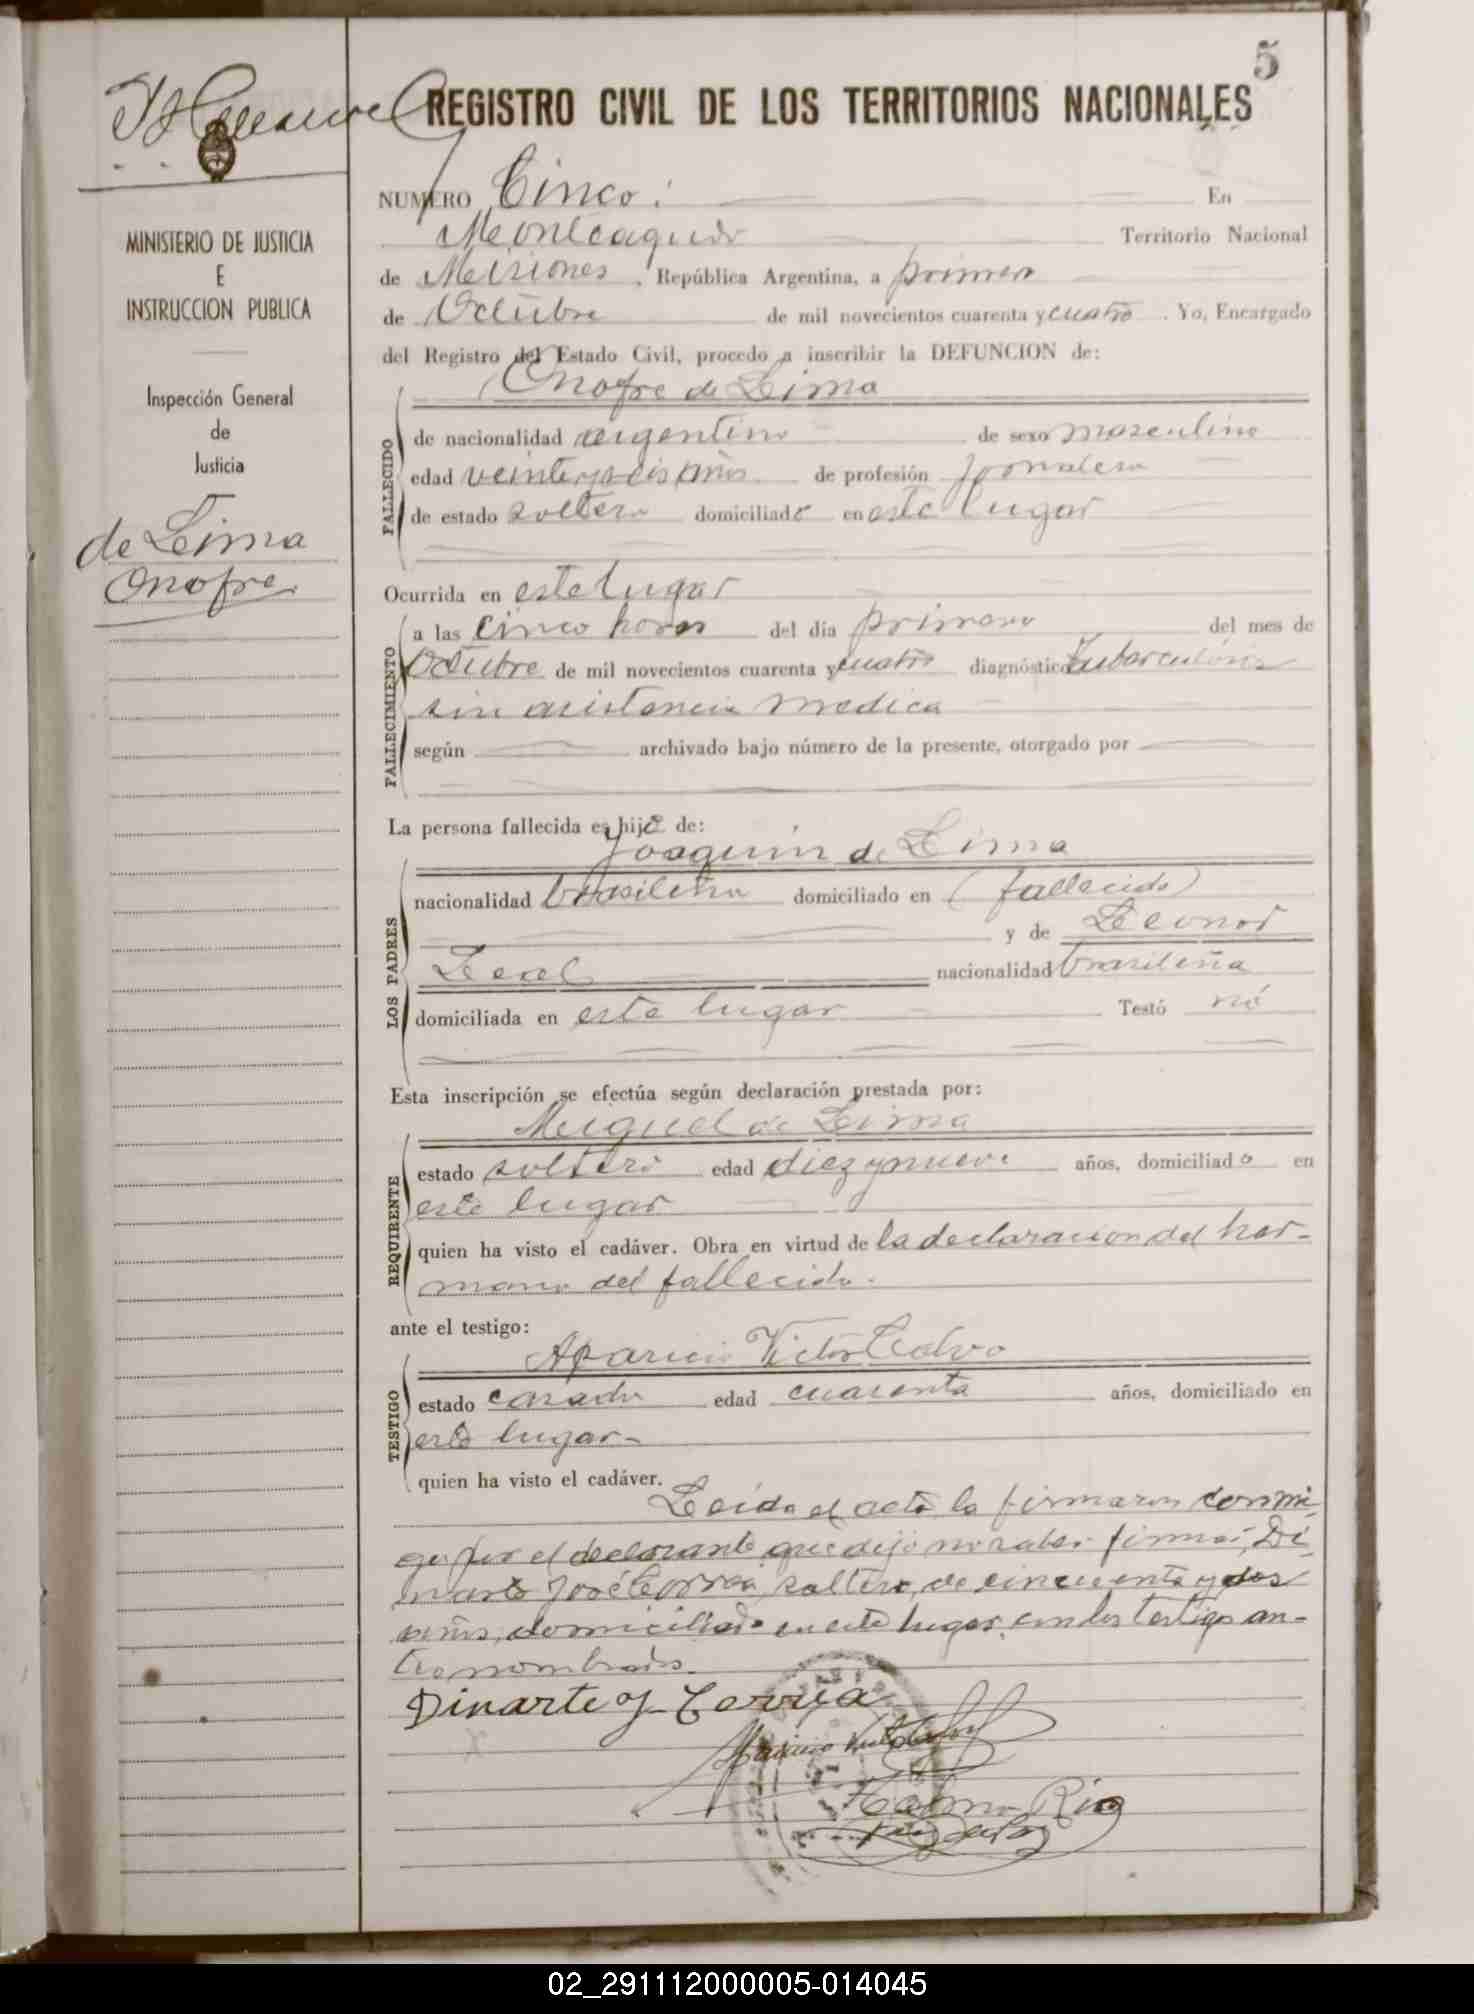 5
REGISTRO CIVIL DE LOS TERRITORIOS NACIONALES
MINISTERIO DE JUSTICIA
E
INSTRUCCION PUBLICA
Inspección General
de
Justicia
de Lima
Onofre
NUMERO Cinco: En
Monteagudo Territorio Nacional
de Misiones, República Argentina, a primero
de Octubre de mil novecientos cuarenta y cuatro. Yo, Encargado
del Registro del Estado Civil, procedo a inscribir la DEFUNCION de:
Onofre de Lima
FALLECIDO
de nacionalidad argentino de sexo masculino
edad veinte y seis años de profesión Jornalero
de estado soltero domiciliado en este lugar
Ocurrida en este lugar
FALLECIMIENTO
a las cinco horas del día primero del mes de
Octubre de mil novecientos cuarenta y cuatro diagnóstico Tuberculosis
sin asistencia medica
según archivado bajo número de la presente, otorgado por
La persona fallecida es hijo de:
Joaquín de Lima
LOS PADRES
nacionalidad brasileña domiciliado en (fallecido)
y de Leonor
Leal nacionalidad brasileña
domiciliada en este lugar Testó nó
Esta inscripción se efectúa según declaración prestada por:
Miguel de Lima
REQUIRENTE
estado soltero edad diez y nueve años, domiciliado en
este lugar
quien ha visto el cadáver. Obra en virtud de la declaracion del her-
mano del fallecido.
ante el testigo:
Aparicio Victor Calvo
TESTIGO
estado casado edad cuarenta años, domiciliado en
este lugar-
quien ha visto el cadáver.
Leída el acta la firmaron conmi
go por el declarante que dijo no saber firmar, Di
narte José Correa, soltero, de cincuenta y dos
años, domiciliado en este lugar, con los testigo an-
tes nombrado.
Dinarte J Correa
02_291112000005-014045